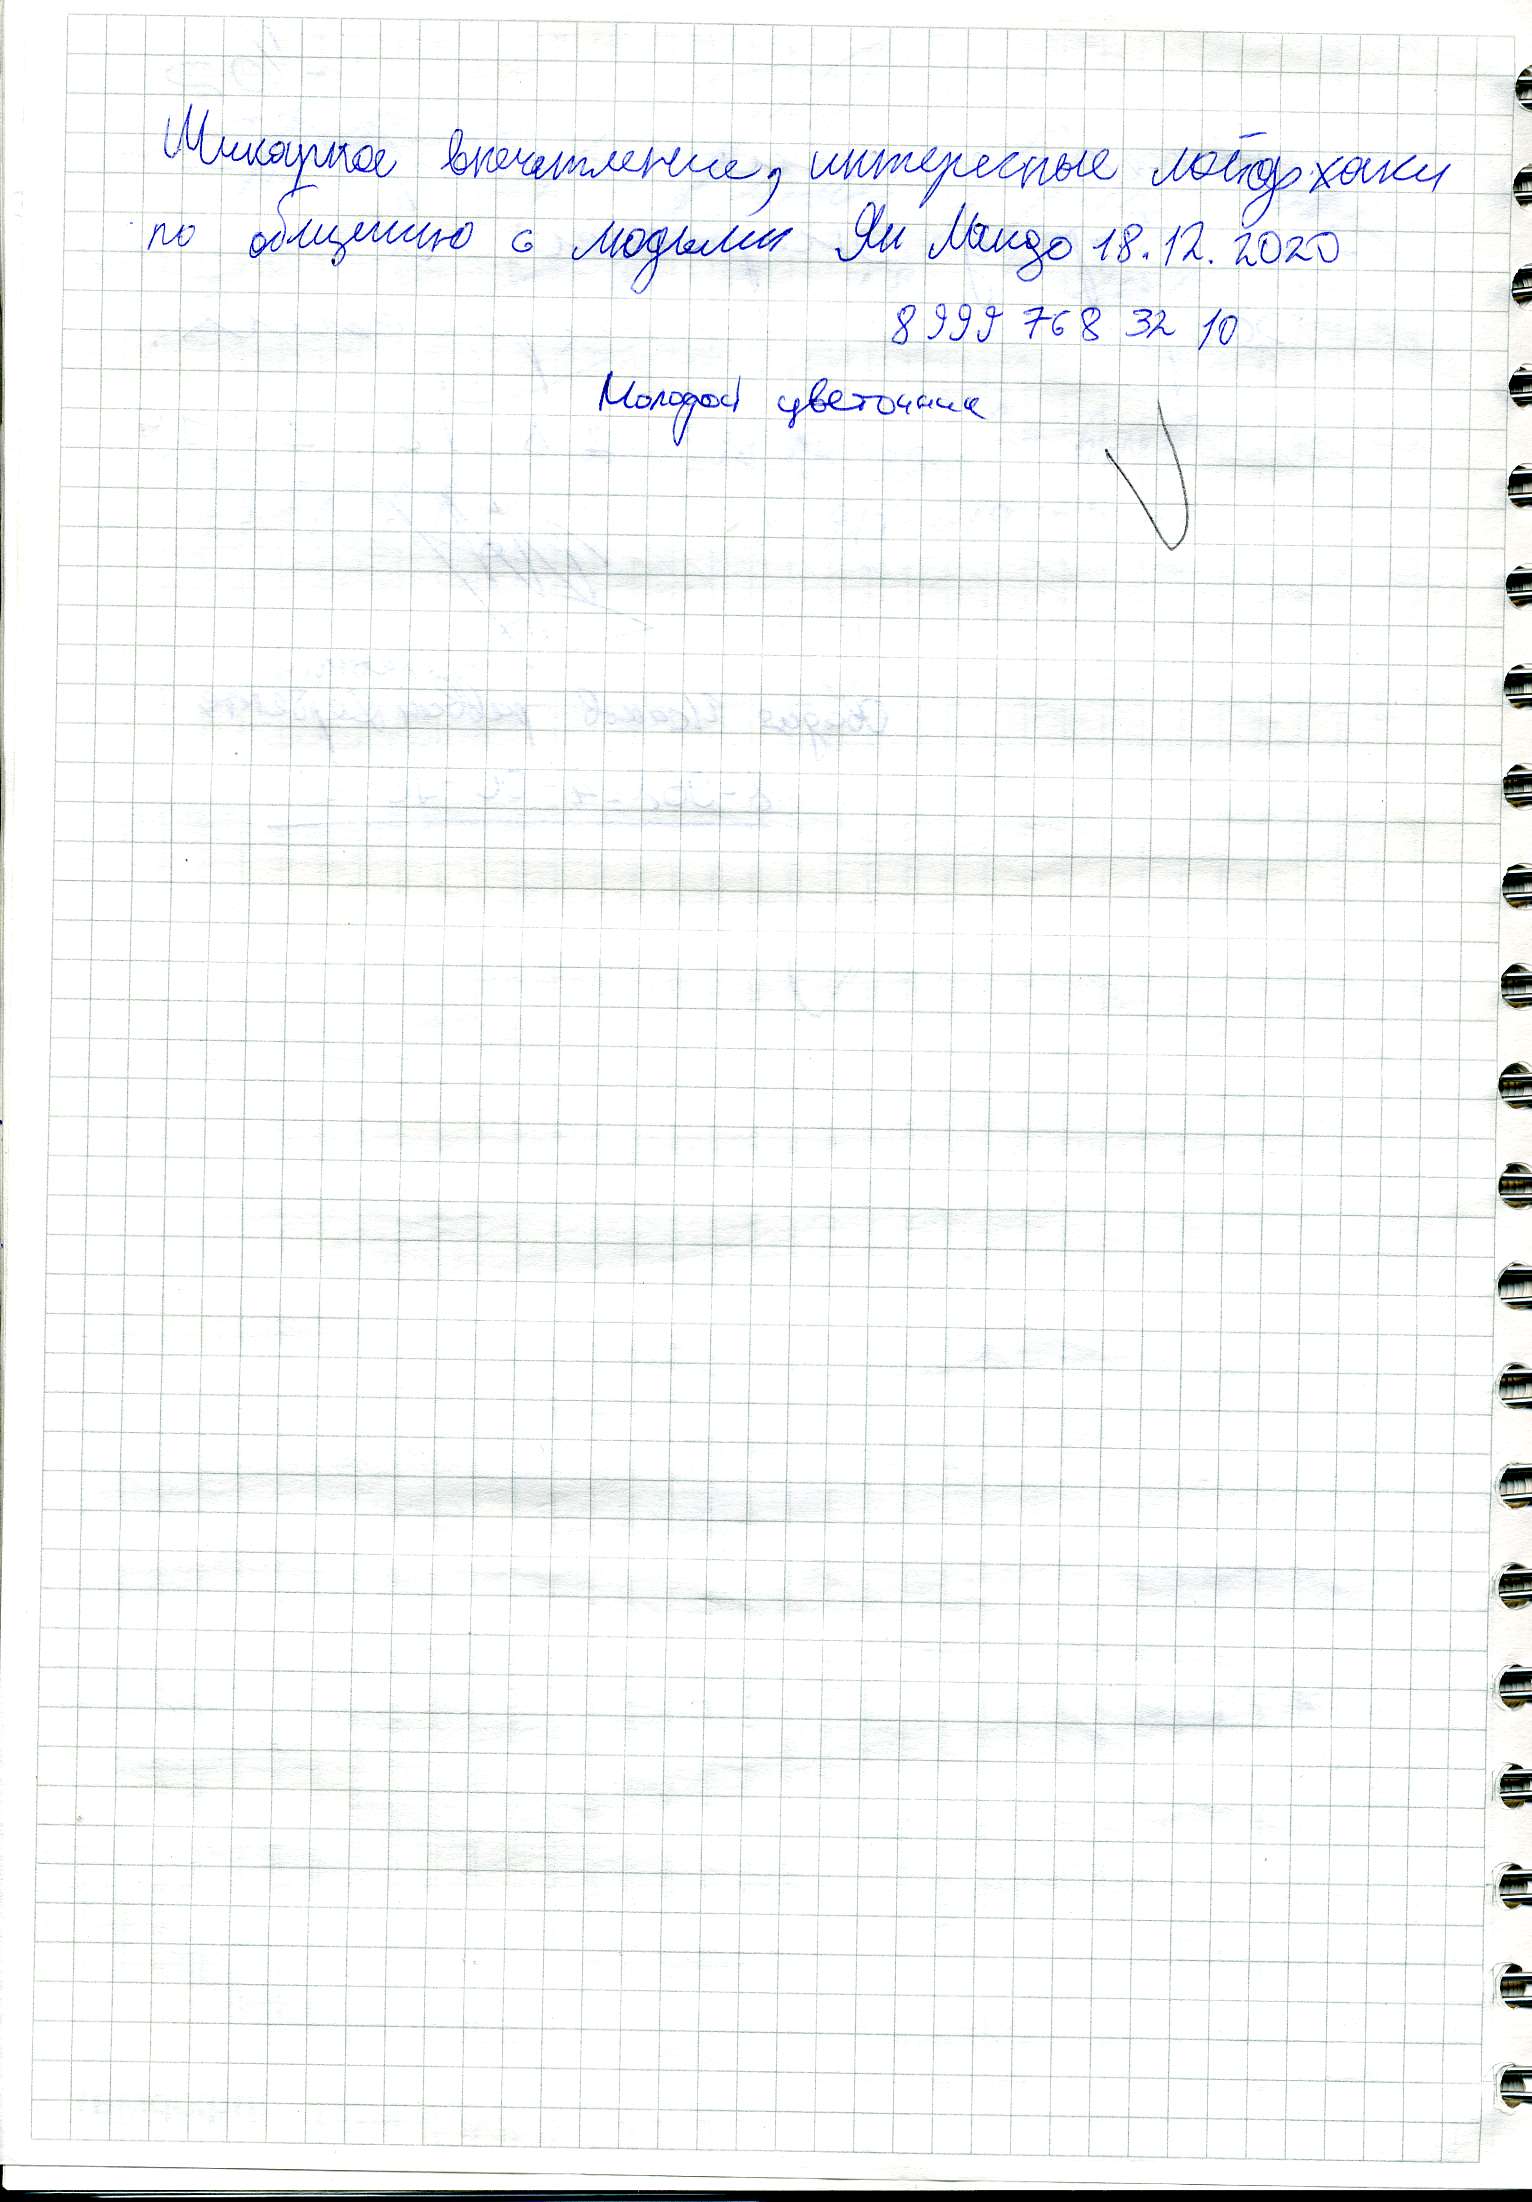 Шикарное впечатление, интересные лайфхаки
по общению с людьми Ян Мандо 18.12.2020
8 999 768 32 10
Молодой цветочник